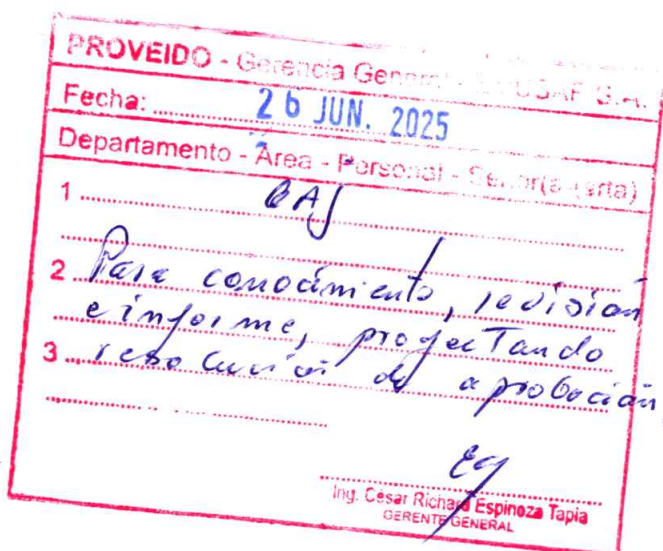 PROVEIDO - Gerencia General S.A.
Fecha: 26 JUN. 2025
Departamento - Área - Personal - Señor(a-srta)
1
2 Para conocimiento, revisión
e informe, proyectando
3 resolución de aprobación
Ing. César Richard Espinoza Tapia
GERENTE GENERAL